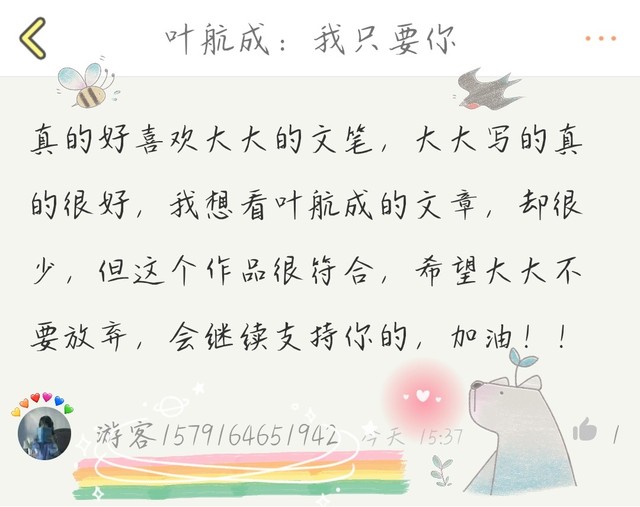 叶航成：我只要你
真的好喜欢大大的文笔，大大写的真
的很好，我想看叶航成的文章，却很
少，但这个作品很符合，希望大大不
要放弃，会继续支持你的，加油！！
游客1579164651942 今天 15:37 1